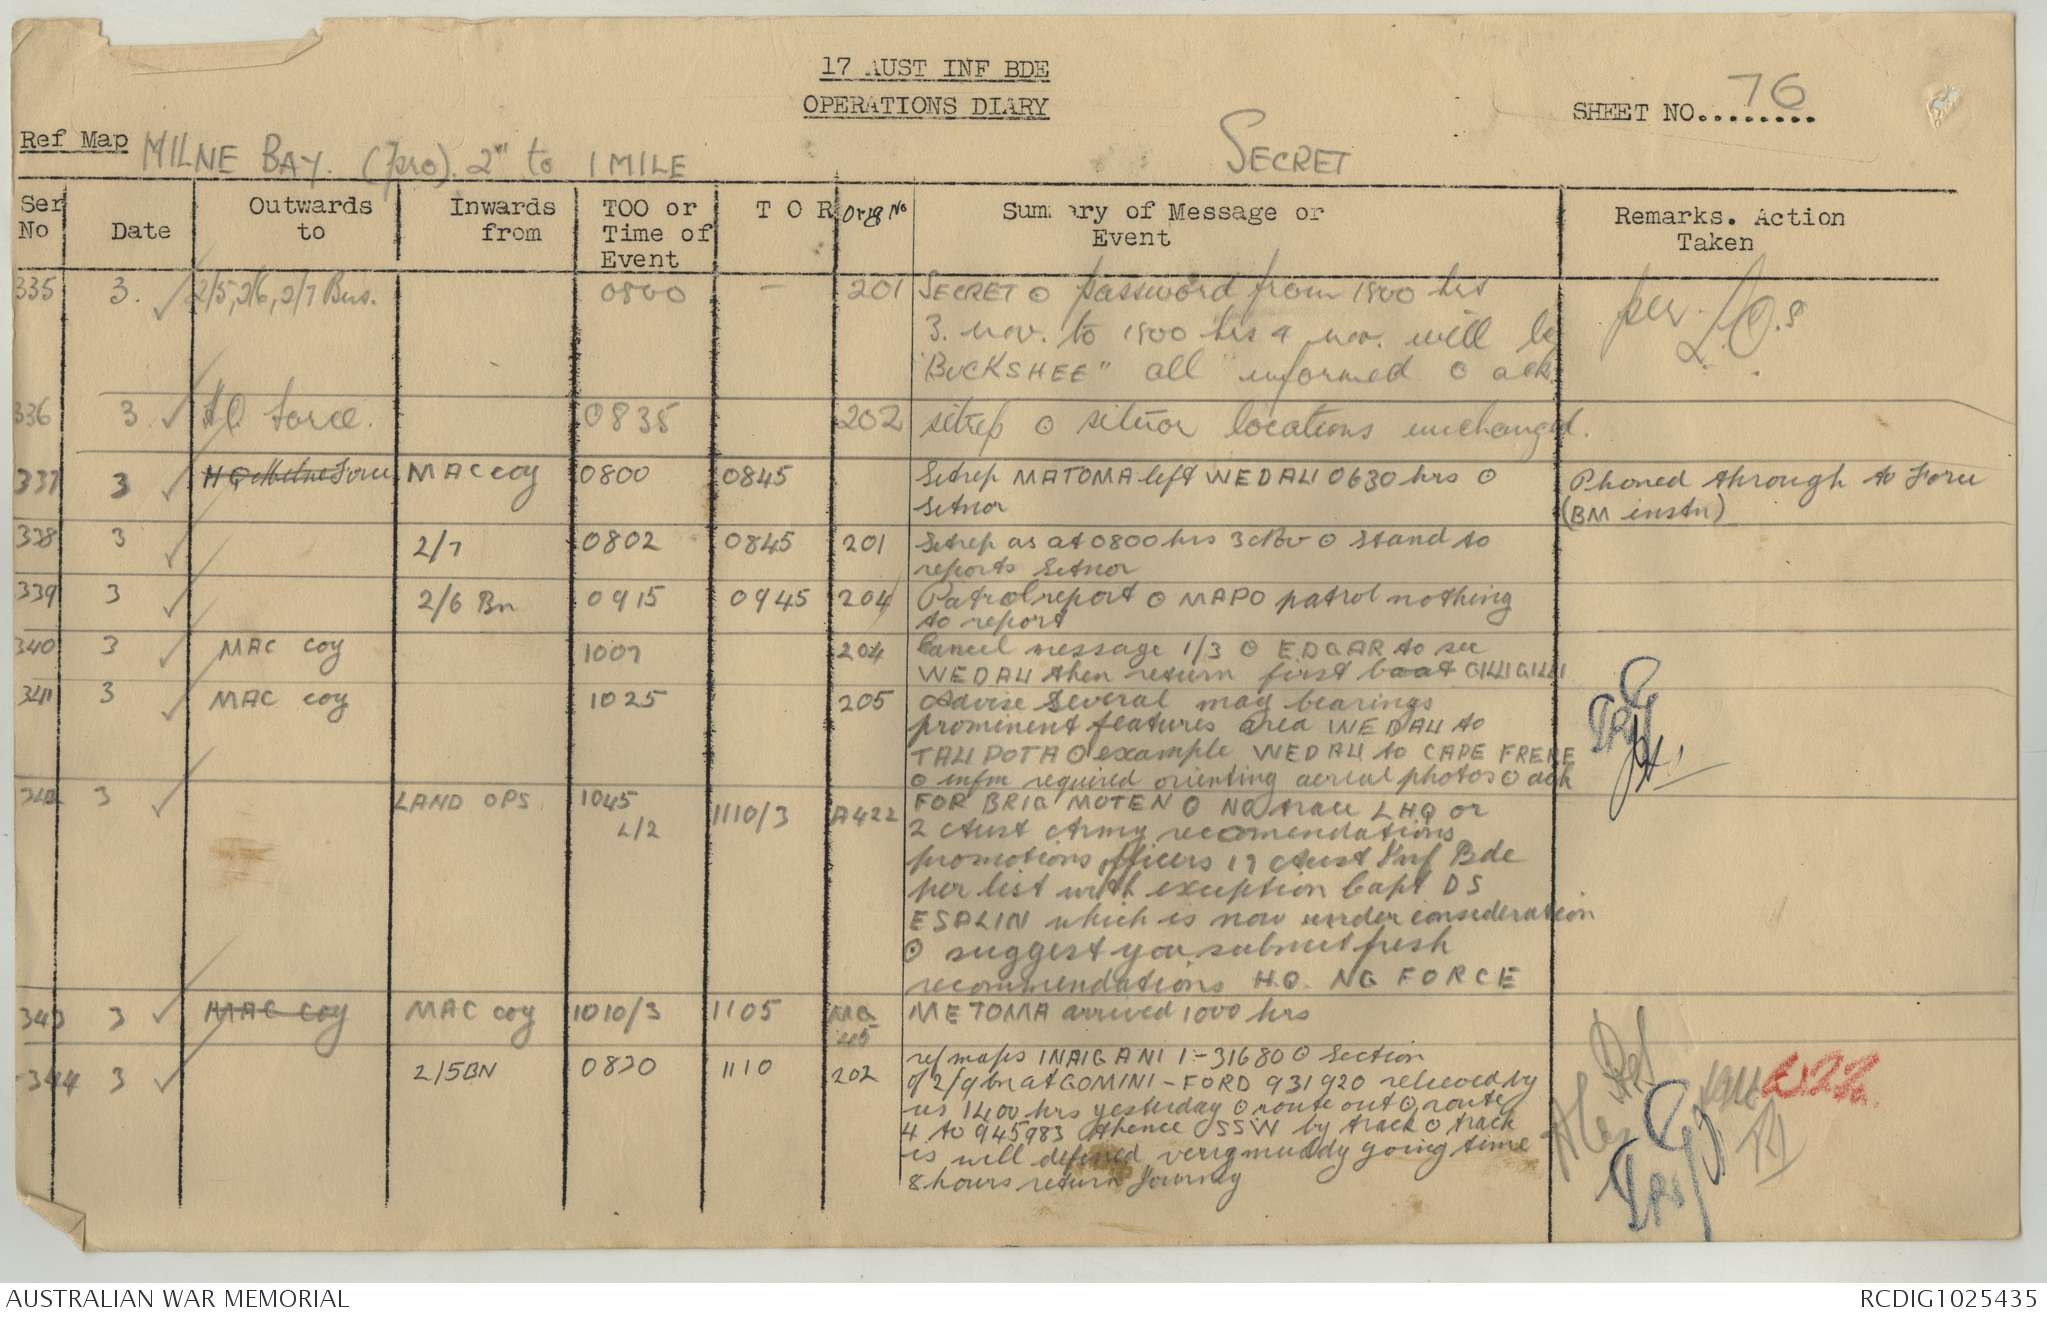 17 AUST INF BDE
OPERATIONS DIARY
SHEET NO......... 76
Ref Map MILNE BAY. (pro). 2" to 1 MILE
SECRET
Ser No
Date
Outwards to
Inwards from
TOO or Time of Event
T O R
Orig No
Summary of Message or Event
Remarks. Action Taken
335 3. 2/5, 2/6, 2/7 Bns. 0800 — 201 SECRET ⊙ password from 1800 hrs
3. nov. to 1800 hrs 4 nov. will be
"BUCKSHEE" all informed ⊙ ack.
per L.O.s
336 3 HQ Force. 0835 202 sitrep ⊙ sitnor locations unchanged.
337 3 HQ Milne Force MAC coy 0800 0845 Sitrep MATOMA left WEDAU 0630 hrs ⊙
Sitnor
Phoned through to Force
(BM instn)
338 3 2/7 0802 0845 201 Sitrep as at 0800 hrs 3 Nov ⊙ Stand to
reports Sitnor
339 3 2/6 Bn 0915 0945 204 Patrol report ⊙ MAPO patrol nothing
to report
340 3 MAC coy 1007 204 Cancel message 1/3 ⊙ EDGAR to see
WEDAU then return first boat GILIGILI
341 3 MAC coy 1025 205 Advise several mag bearings
prominent features area WEDAU to
TAUPOTA ⊙ example WEDAU to CAPE FRERE
⊙ infm required orienting aerial photos ⊙ ack
342 3 LAND OPS 1045 1110/3 A422 FOR BRIG MOTEN ⊙ No trace LHQ or
2 Aust Army recomendations
promotions officers 17 Aust Inf Bde
per list with exception Capt DS
ESPLIN which is now under consideration
⊙ suggest you submit fresh
recommendations H.Q. NG FORCE
343 3 MAC coy MAC coy 1010/3 1105 METOMA arrived 1000 hrs
344 3 2/5 BN 0820 1110 202 ref maps INAIGANI 1-31680 ⊙ Section
of 2/9 bn at GOMINI-FORD 931920 relieved by
us 1400 hrs yesterday ⊙ route out ⊙ route
4 to 945983 thence SSW by track ⊙ track
is well defined very muddy going time
8 hours return journey
AUSTRALIAN WAR MEMORIAL
RCDIG1025435